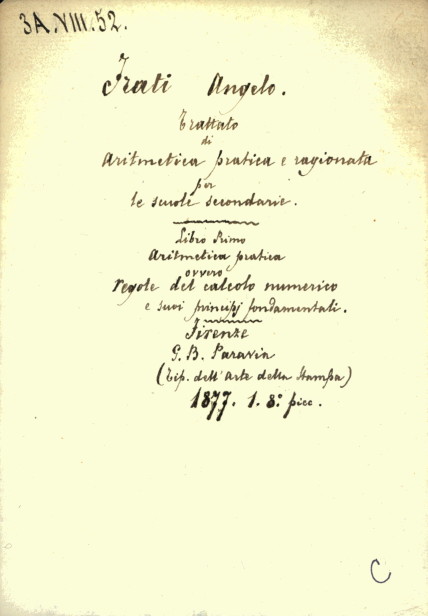 3A.VIII.52.
Frati Angelo.
Trattato
di
Aritmetica pratica e ragionata
per
le scuole secondarie.
Libro Primo
Aritmetica pratica
ovvero
regole del calcolo numerico
e suoi principj fondamentali.
Firenze
G. B. Paravia
(Tip. dell'Arte della Stampa)
1877. 1. 8.° picc.
C